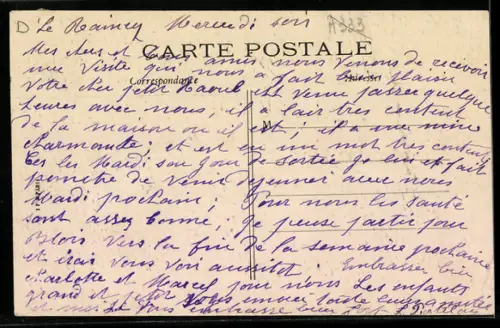 Le Raincy Mercredi soir
A323
Mes chers et bons amis nous venons de recevoir
CARTE POSTALE
une visite qui nous a fait plaisir
Correspondance Adresse
Votre cher petit Raoul est venu passer quelque
heures avec nous, il a l'air très content
M
de la maison ou il est; il a une mine
charmante; et est en un mot très content
les Mardi son jour de sortie je lui ai fait
promettre de venir déjeuner avec nous
Mardi prochain; Pour nous les santé
sont assez bonne; je pense partir pour
Blois vers la fin de la semaine prochaine
et irai vous voir aussitôt. Embrasser bien
Charlotte et Marcel pour nous Les enfants
grand et petit vous envoie toute leurs amitiés
et moi je vous embrasse bien